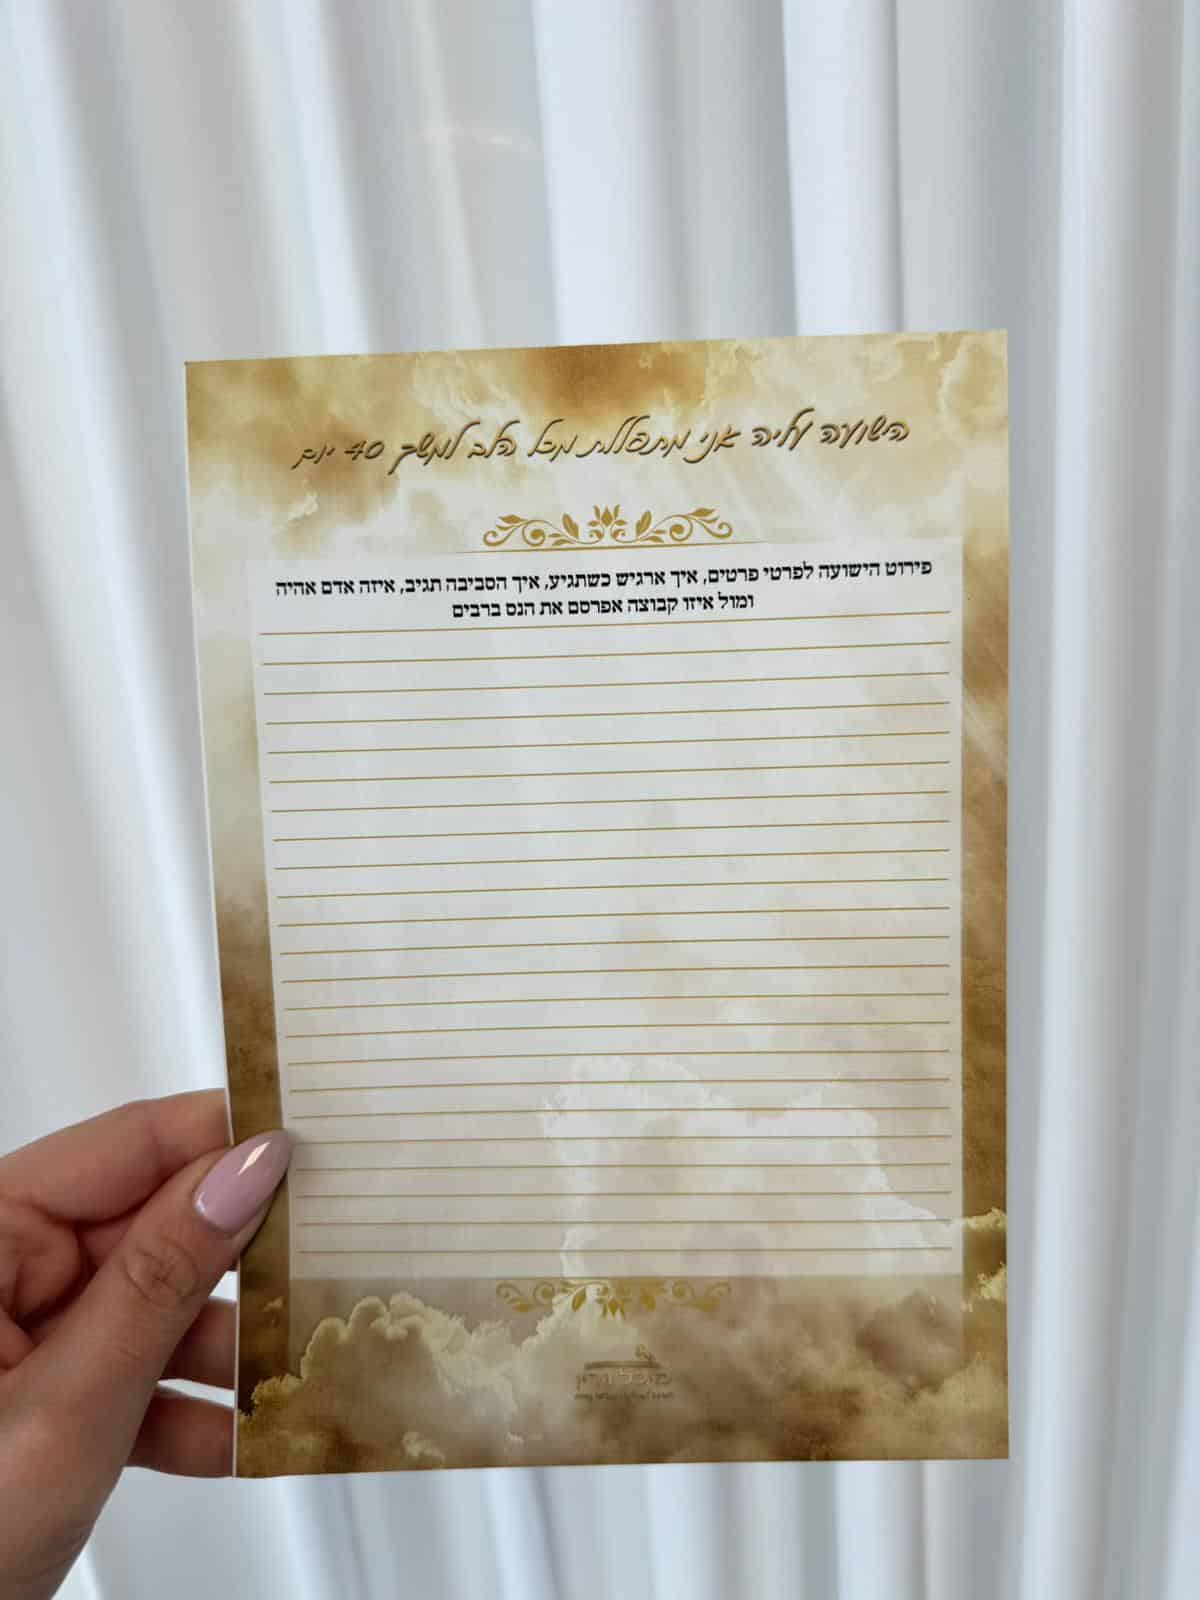 הישועה עליה אני מתפללת מכל הלב למשך 40 יום
פירוט הישועה לפרטי פרטים, איך ארגיש כשתגיע, איך הסביבה תגיב, איזה אדם אהיה
ומול איזו קבוצה אפרסם את הנס ברבים